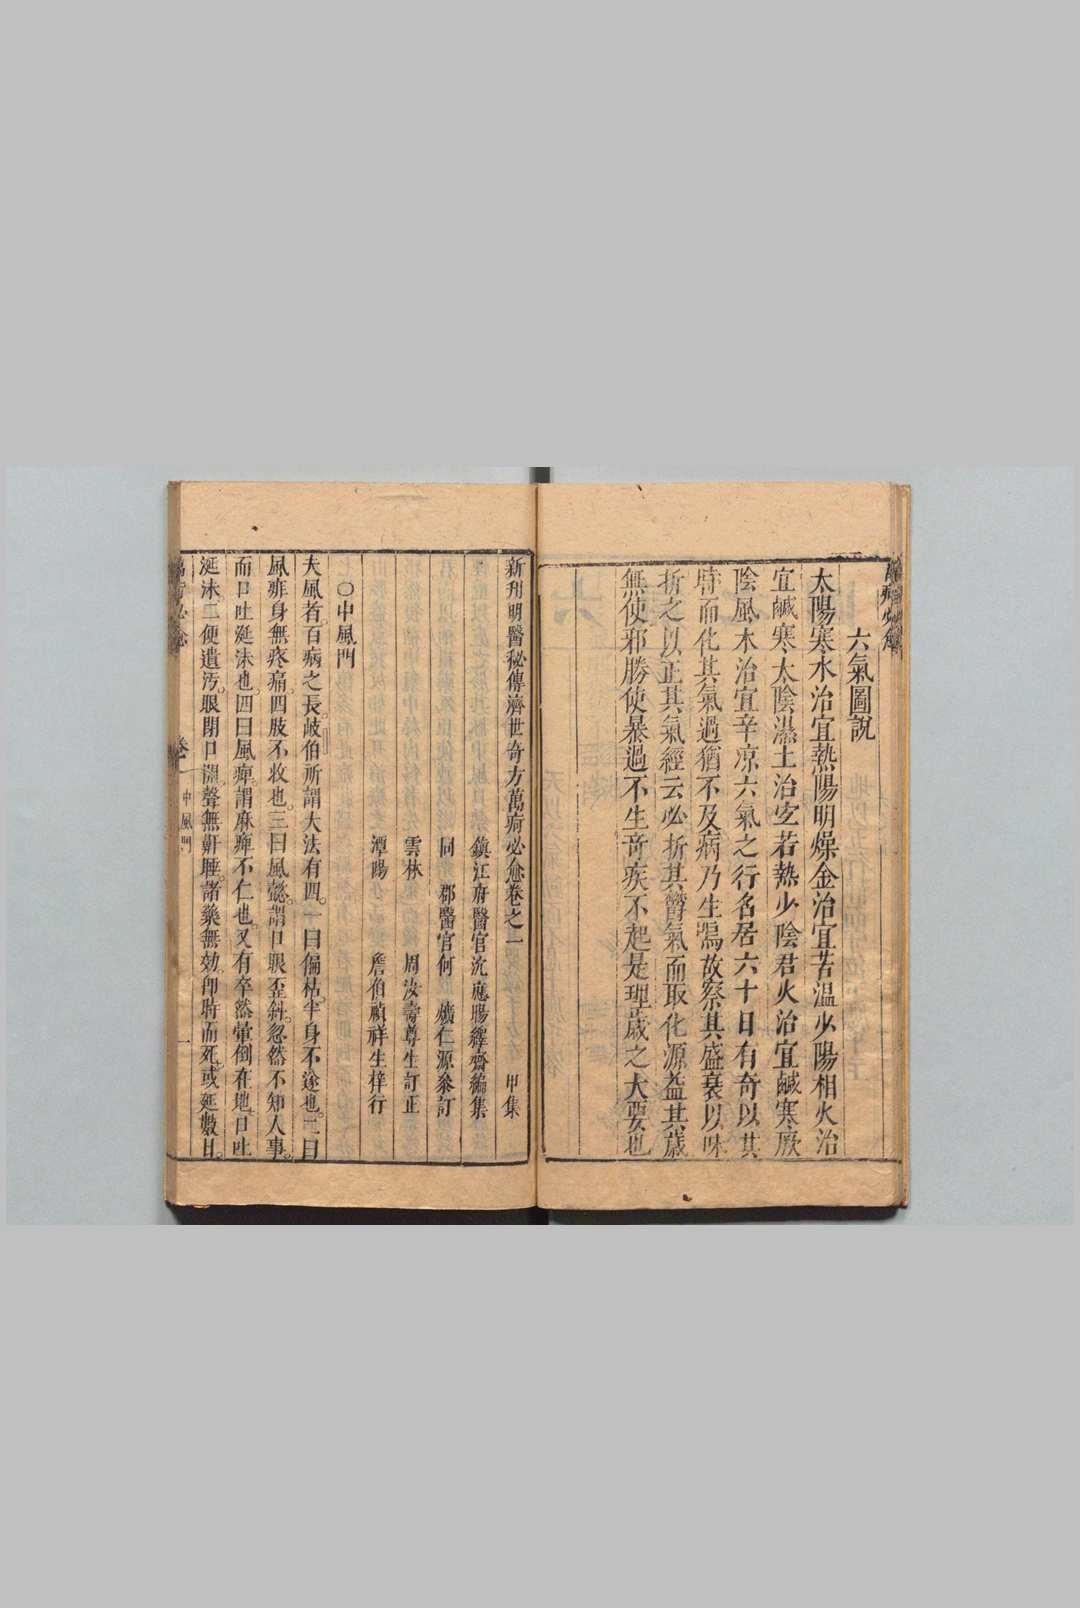 六氣圖說
太陽寒水治宜熱陽明燥金治宜苦溫少陽相火治
宜鹹寒太陰濕土治宜若熱少陰君火治宜鹹寒厥
陰風木治宜辛凉六氣之行名居六十日有奇以其
時而化其氣過猶不及病乃生焉故察其盛衰以味
折之以正其氣經云必折其欝氣而取化源益其歲
無使邪勝使暴過不生苛疾不起是理歲之大要也
新刋明醫秘傳濟世奇方萬病必愈卷之一 甲集
鎮江府醫官沈應暘繹齋編集
同郡醫官何 鑛仁源叅訂
雲林 周汝壽尊生訂正
潭陽 詹伯禎祥生梓行
〇中風門
夫風者。百病之長。岐伯所謂大法有四。一曰偏枯。半身不遂也。二曰
風痱。身無疼痛。四肢不收也。三曰風懿。謂口眼歪斜。忽然不知人事。
而口吐涎沫也。四曰風痺。謂麻痺不仁也。又有卒然暈倒在地。口吐
涎沫。二便遺汚。眼閉口 聲無鼾睡。諸藥無効。卽時而死。或延數日。
卷一 中風門 一